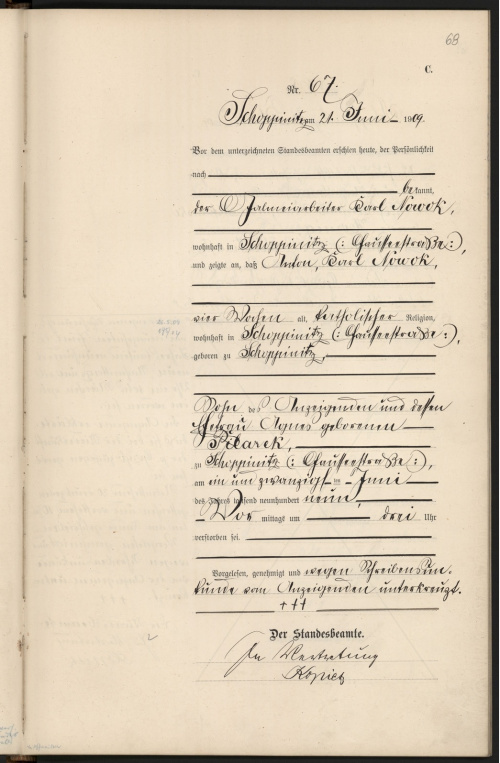 68
C.
Nr. 67.
Schoppinitz am 21. Juni 1909.
Vor dem unterzeichneten Standesbeamten erschien heute, der Persönlichkeit
nach
bekannt,
der Galmeiarbeiter Karl Nowok,
wohnhaft in Schoppinitz (: Chausseestraße :),
und zeigte an, daß Anton, Karl Nowok,
vier Wochen alt, katholischer Religion,
wohnhaft in Schoppinitz (: Chausseestraße :),
geboren zu Schoppinitz,
Sohn des Anzeigenden und dessen
Ehefrau Agnes geborenen
Pilarek,
zu Schoppinitz (: Chausseestraße :),
am ein und zwanzigst en Juni
des Jahres tausend neunhundert neun,
Vor mittags um drei Uhr
verstorben sei.
Vorgelesen, genehmigt und wegen Schreibensun-
kunde vom Anzeigenden unterkreuzt.
+++
Der Standesbeamte.
In Vertretung